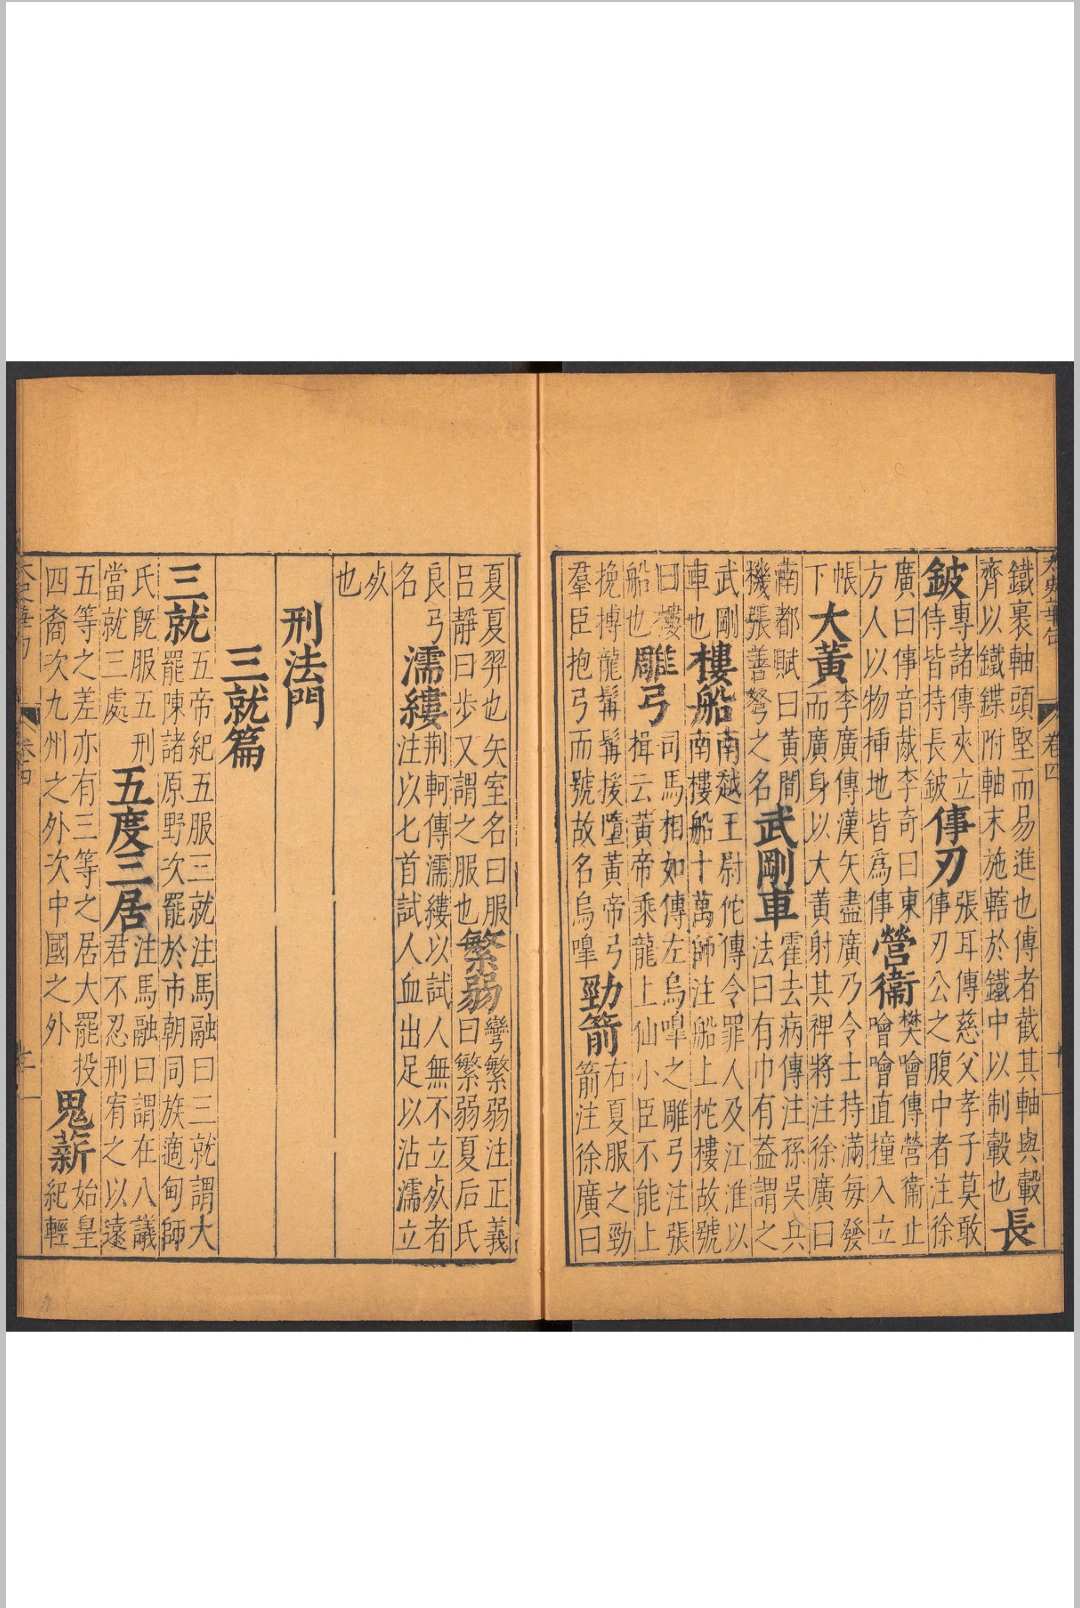 太史華句 卷四 十
鐵裹軸頭堅而易進也傅者截其軸與轂
齊以鐵鍱附軸末施轄於鐵中以制轂也 長
鈹 專諸傳夾立
侍皆持長鈹 倳刃 張耳傳慈父孝子莫敢
倳刃公之腹中者注徐
廣曰倳音胾李奇曰東
方人以物揷地皆爲倳 營衞 樊噲傳營衞止
噲噲直撞入立
帳
下 大黃 李廣傳漢矢盡廣乃令士持滿每發
而廣身以大黃射其裨將注徐廣曰
南都賦曰黃間
機張善弩之名 武剛車 霍去病傳注孫吳兵
法曰有巾有葢謂之
武剛
車也 樓船 南越王尉佗傳令罪人及江淮以
南樓船十萬師注船上柁樓故號
曰樓
船也 雕弓 司馬相如傳左烏嘷之雕弓注張
揖云黃帝乘龍上仙小臣不能上
挽搏龍髯髯援墮黃帝弓
羣臣抱弓而號故名烏嘷 勁箭 右夏服之勁
箭注徐廣曰
夏夏羿也矢室名曰服
呂靜曰步叉謂之服也 繁弱 彎繁弱注正義
曰繁弱夏后氏
良弓
名 濡縷 荆軻傳濡縷以試人無不立死者
注以匕首試人血出足以沾濡立
死
也
刑法門
三就篇
三就 五帝紀五服三就注馬融曰三就謂大
罷陳諸原野次罷於市朝同族適甸師
氏旣服五刑
當就三處 五度三居 注馬融曰謂在八議
君不忍刑宥之以遠
五等之差亦有三等之居大罷投
四裔次九州之外次中國之外 鬼薪 始皇
紀輕
太史華句 卷四 十一